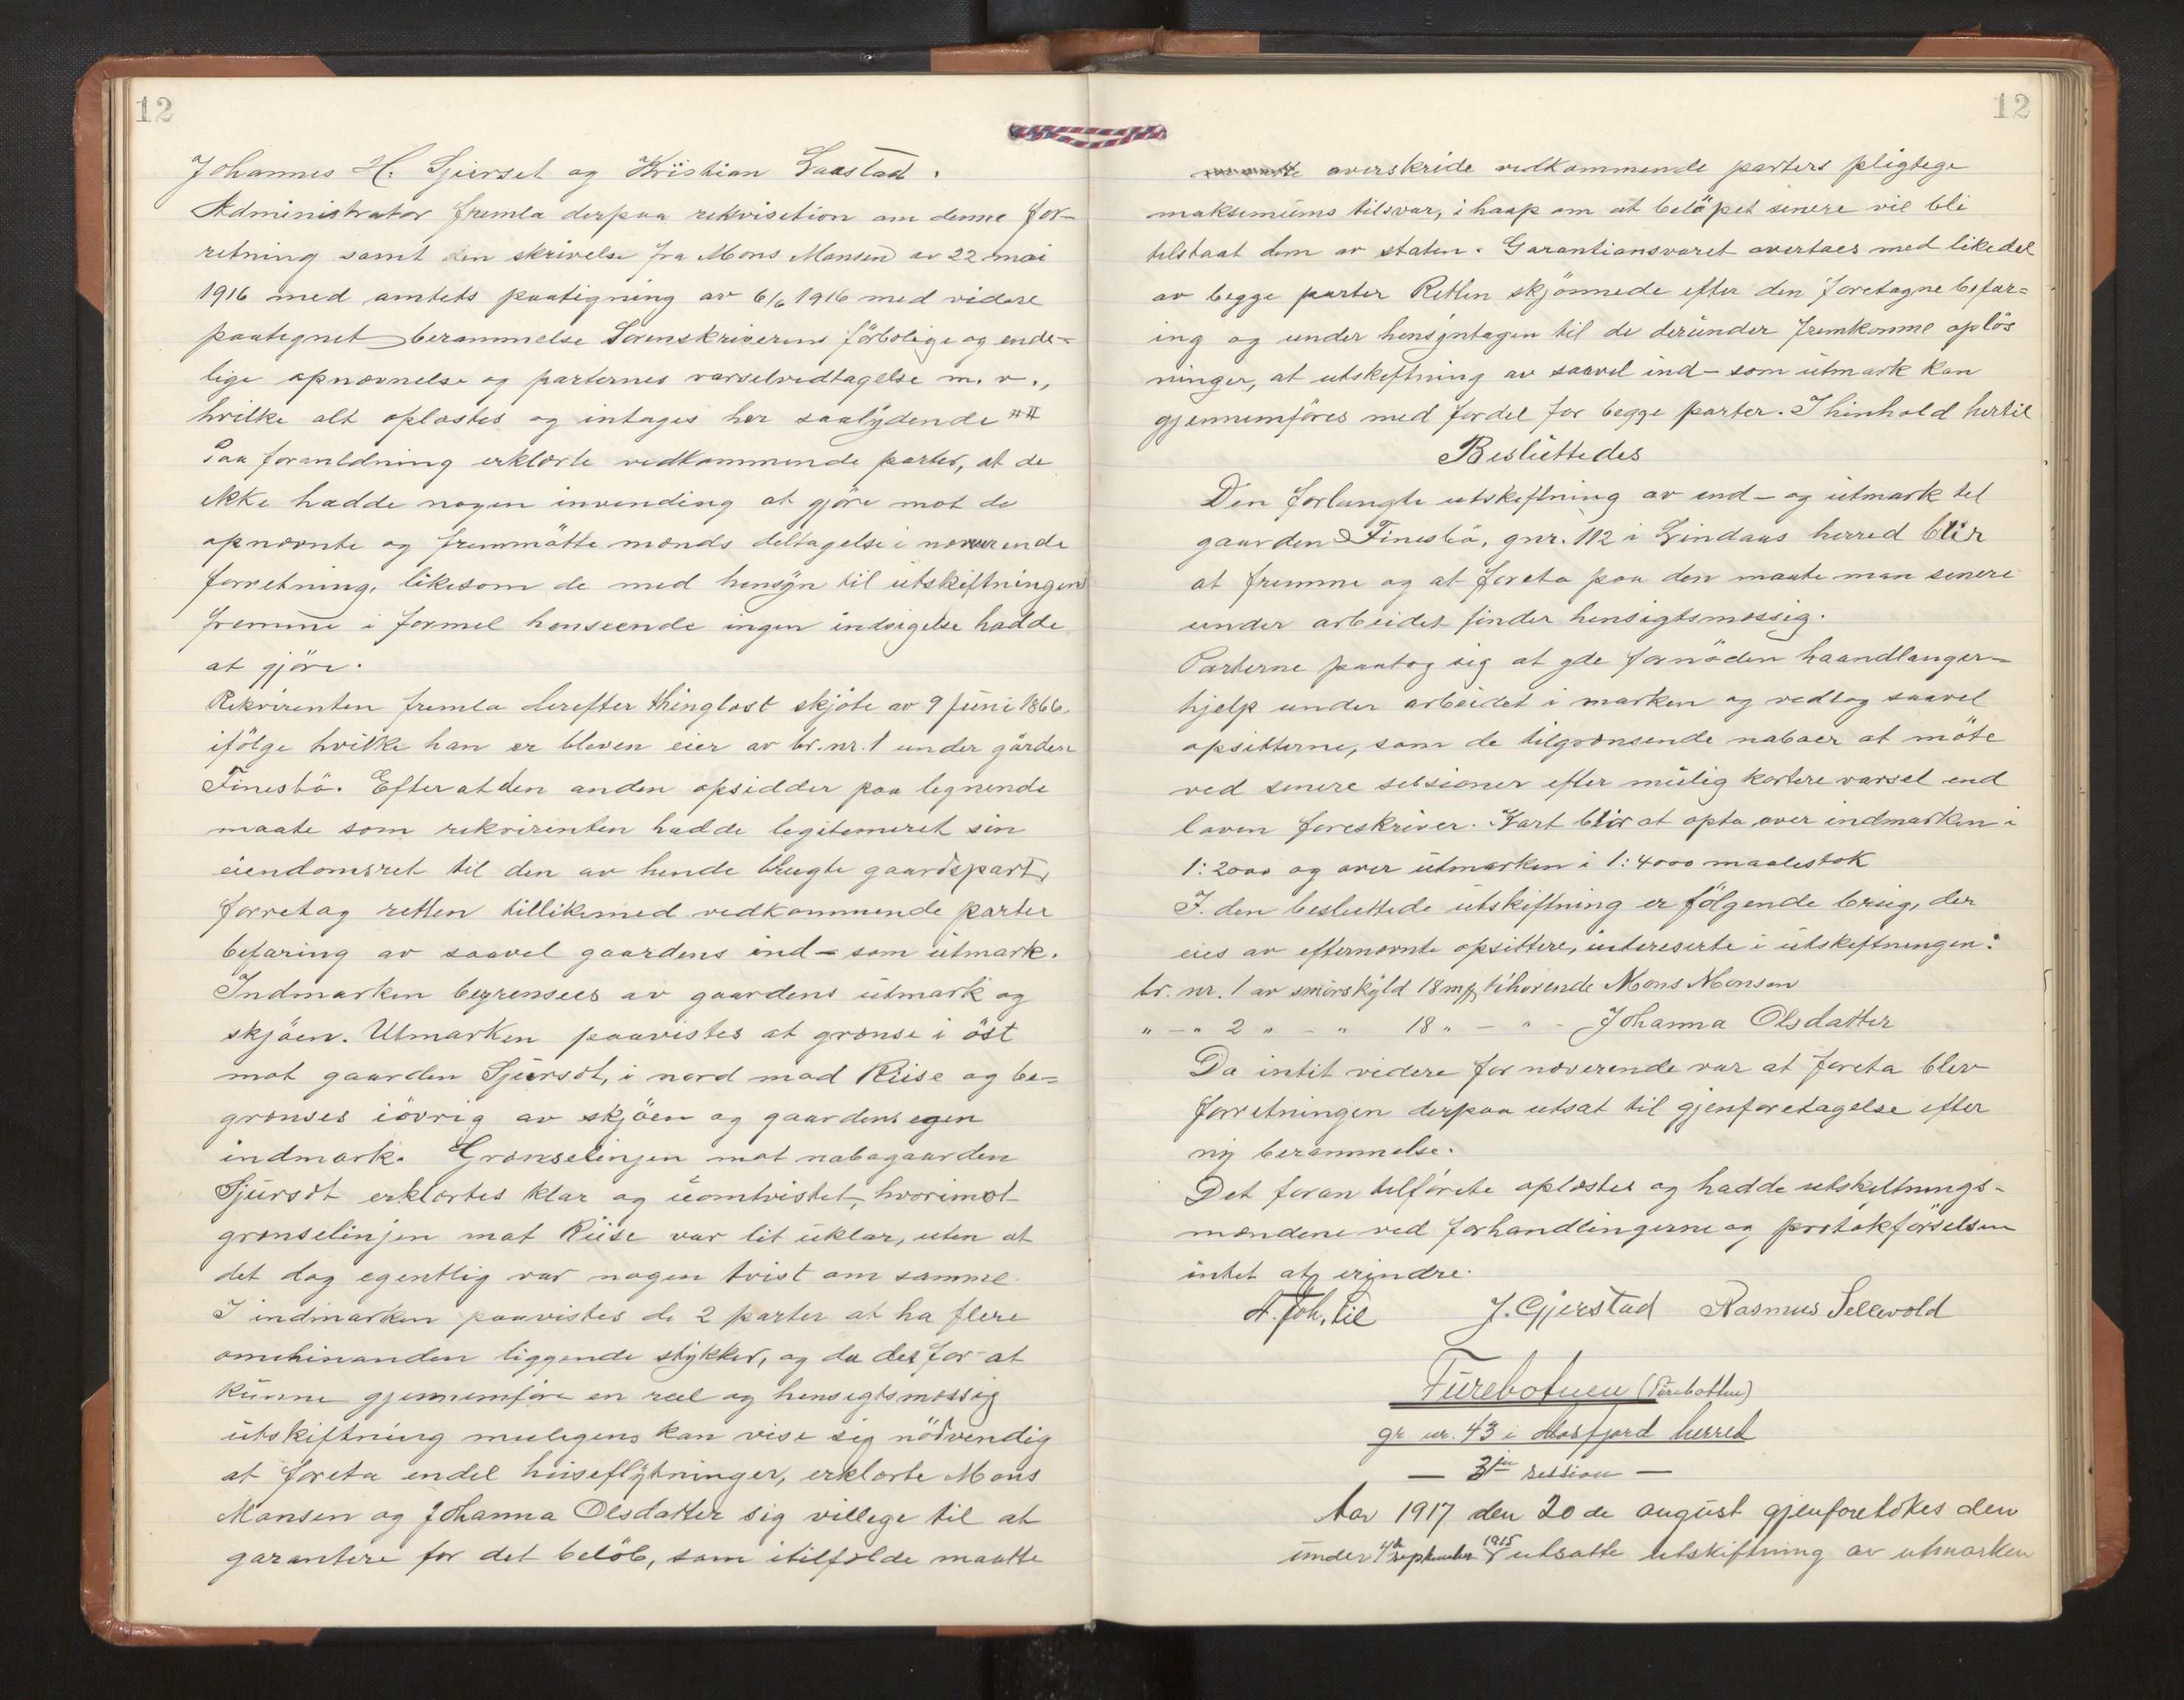 12
Johannes H. Sjurset og Kristian Laastad.
Administrator fremla derpaa rekvisition om denne for-
retning samt den skrivelse fra Mons Monsen av 22 mai
1916 med amtets paategning av 6/6 1916 med videre
paategnet berammelse Sorenskriverens förbolige og ende=
lige opnævnelse og parternes varselvedtagelse m. v.,
hvilke alt oplæstes og intages her saalydende ##
Paa foranledning erklærte vedkommende parter, at de
ikke hadde nogen invending at gjöre mot de
opnævnte og fremmötte mænds deltagelse i nærværende
forretning, likesom de med hensyn til utskiftningens
fremme i formel henseende ingen indsigelse hadde
at gjöre.
Rekvirenten fremla derefter thinglæst skjöte av 9 juni 1866
ifölge hvilke han er bleven eier av br. nr. 1 under gården
Finesbö. Efter at den anden opsidder paa lignende
maate som rekvirenten hadde legitemeret sin
eiendomsret til den av hende brugte gaardspart,
forretog retten tillikemed vedkommende parter
befaring av saavel gaardens ind- som utmark.
Indmarken begrenses av gaardens utmark og
skjöen. Utmarken paavistes at grænse i öst
mot gaarden Sjurset, i nord mod Riise og be=
grænses iövrig av skjöen og gaardens egen
indmark. Grænselinjen mot nabogaarden
Sjurset erklærtes klar og uomtvistet, hvorimot
grænselinjen mot Riise var lit uklar, uten at
det dog egentlig var nogen tvist om samme.
I indmarken paavistes de 2 parter at ha flere
omehinanden liggende stykker, og da det for at
kunne gjennemföre en reel og hensigtsmæssig
utskiftning muligens kan vise sig nödvendig
at foreta endel huseflytninger, erklærte Mons
Monsen og Johanna Olsdatter sig villege til at
garantere for det belöb, som itilfælde maatte
12
overskride vedkommende parters pligtege
maksemums tilsvar, i haap om at belöpet senere vil bli
tilstaat dem av staten. Garantiansvaret overtaes med likedel
av begge parter Retten skjönnede efter den foretagne befar=
ing og under hensyntagen til de derunder fremkomne oplös
ninger, at utskiftning av saavel ind- som utmark kan
gjennemföres med fordel for begge parter. I hinhold hertil
Besluttedes
Den forlangte utskiftning av ind- og utmark til
gaarden Finesbö, gnr. 112 i Lindaas herred blir
at fremme og at foreta paa den maate man senere
under arbeidet finder hensigtsmæssig.
Parterne paatog sig at yde fornöden haandlanger-
hjelp under arbeidet i marken og vedtog saavel
opsitterne, som de tilgrænsende naboer at möte
ved senere sessioner efter mulig kortere varsel end
loven foreskriver. Kart blir at opta over indmarken i
1:2000 og over utmarken i 1:4000 maalestok
I. den besluttede utskiftning er fölgende brug, der
eies av efternævnte opsittere, intereserte i utskiftningen:
br. nr. 1 av smörskyld 18 mrk tilhörende Mons Monsen
" - " 2 " - " 18 " - " - Johanna Olsdatter
Da intet videre for nærverende var at foreta blev
forretningen derpaa utsat til gjenforetagelse efter
ny berammelse.
Det foran tilförte oplæstes og hadde utskiftnings-
mændene ved forhandlingerne og protokförselsen
intet at erindre.
J. Gjerstad Rasmus Sellevold
Furebotnen (Furebotten)
gr nr. 43 i Masfjord herred
— 3die session —
Aar 1917 den 20de august gjenforetokes den
under 4de september 1915 utsatte utskiftning av utmarken